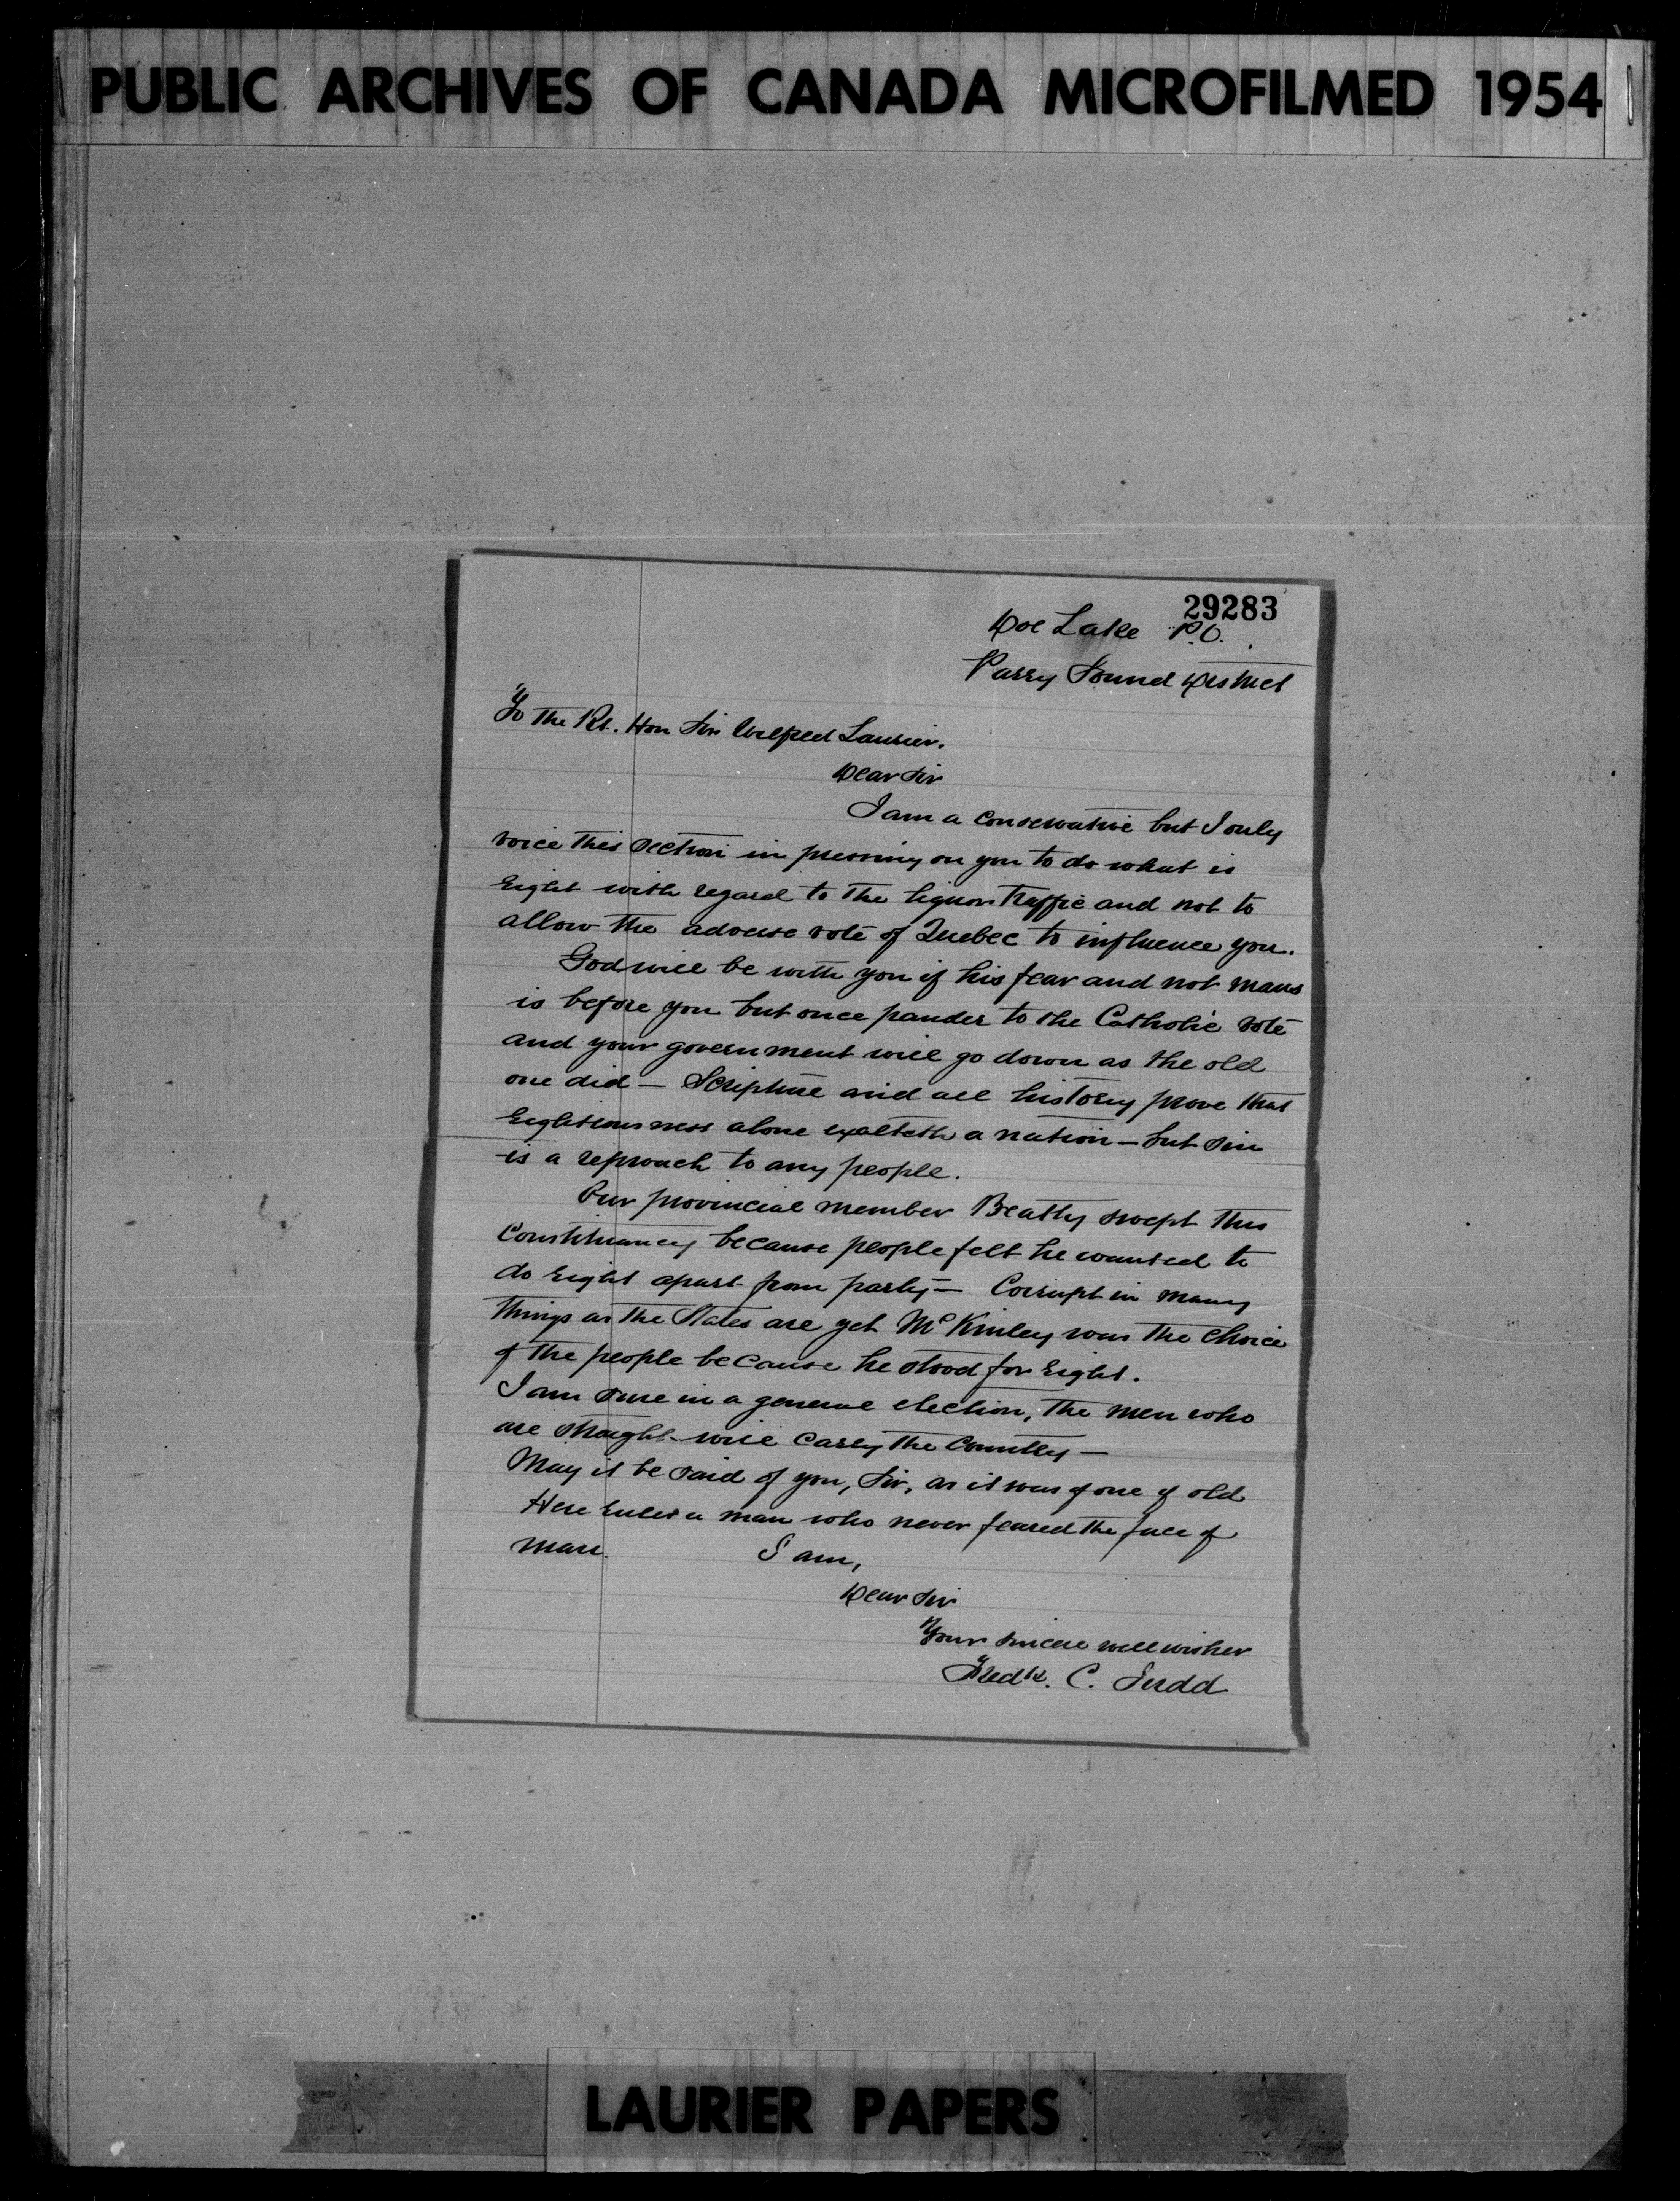 PUBLIC ARCHIVES OF CANADA MICROFILMED 1954
29283
Doe Lake P.O.
Parry Sound District
To the Rt. Hon Sir Wilfred Laurier.
Dear Sir
I am a conservative but I only
voice this section in pressing on you to do what is
right with regard to the liquor traffic and not to
allow the adverse vote of Quebec to influence you.
God will be with you if his fear and not mans
is before you but once pander to the Catholic vote
and your government will go down as the old
one did — Scripture and all history prove that
righteousness alone exalteth a nation — but sin
is a reproach to any people.
Our provincial member Beatty swept this
constituancy because people felt he wanted to
do right apart from party — Corrupt in many
things as the States are yet McKinley was the choice
of the people because he stood for right.
I am sure in a general election, the men who
are straight will carry the country —
May it be said of you, Sir, as it was of one of old
Here rules a man who never feared the face of
man. I am,
Dear Sir
Your sincere wellwisher
Fredk. C. Judd
LAURIER PAPERS